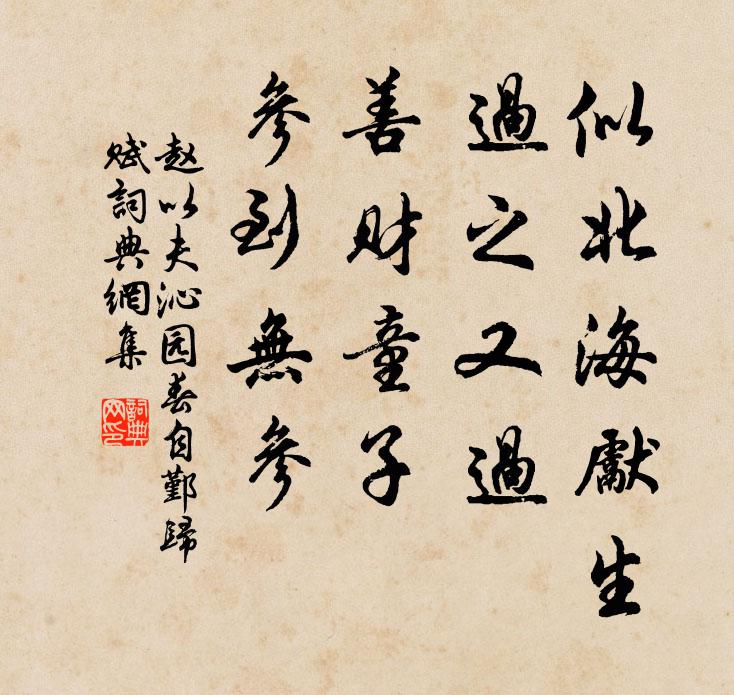 似北海獻生
過之又過
善財童子
參到無參
赵以夫沁园春自鄞歸
賦詞典網集
詞典网印